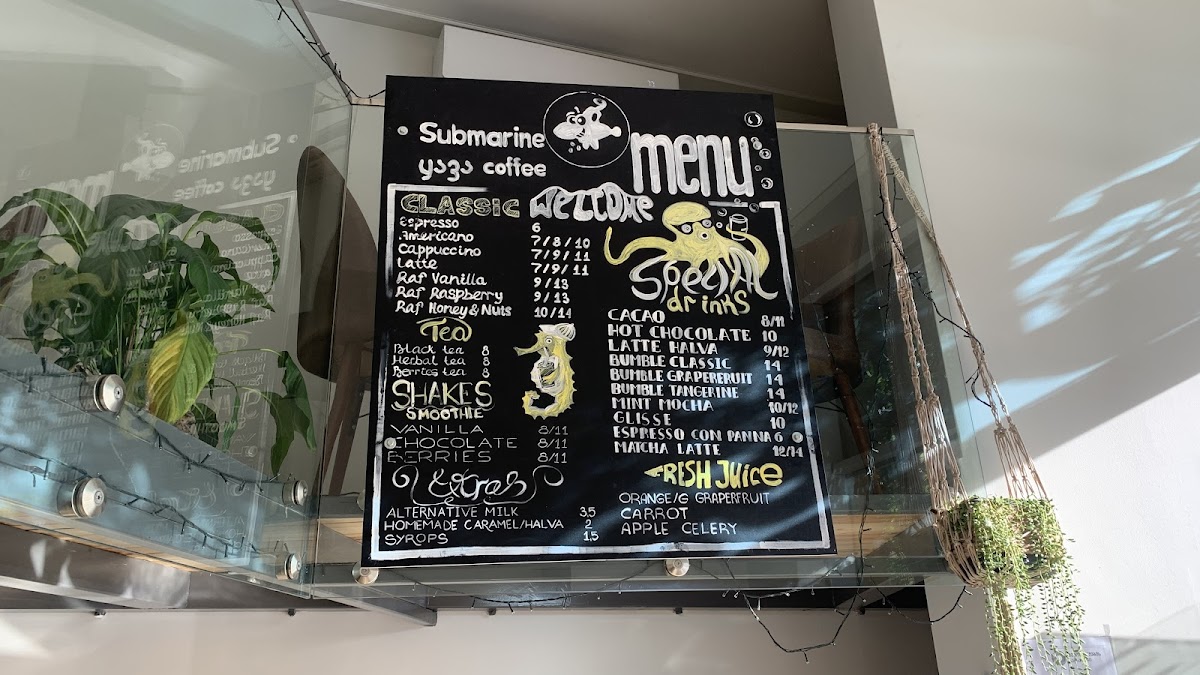 Submarine
ყავა coffee
menu
CLASSIC WELCOME
Espresso 6
Americano 7/8/10
Cappuccino 7/9/11
Latte 7/9/11
Raf Vanilla 9/13
Raf Raspberry 9/13
Raf Honey & Nuts 10/14
Tea
Black tea 8
Herbal tea 8
Berries tea 8
SHAKES
SMOOTHIE
VANILLA 8/11
CHOCOLATE 8/11
BERRIES 8/11
Extras
ALTERNATIVE MILK 3,5
HOMEMADE CARAMEL/HALVA 2
SYROPS 1,5
Special
drinks
CACAO 8/11
HOT CHOCOLATE 10
LATTE HALVA 9/12
BUMBLE CLASSIC 14
BUMBLE GRAPERFRUIT 14
BUMBLE TANGERINE 14
MINT MOCHA 10/12
GLISSE 10
ESPRESSO CON PANNA 6
MATCHA LATTE 12/14
FRESH JUICE
ORANGE/G GRAPERFRUIT
CARROT
APPLE CELERY